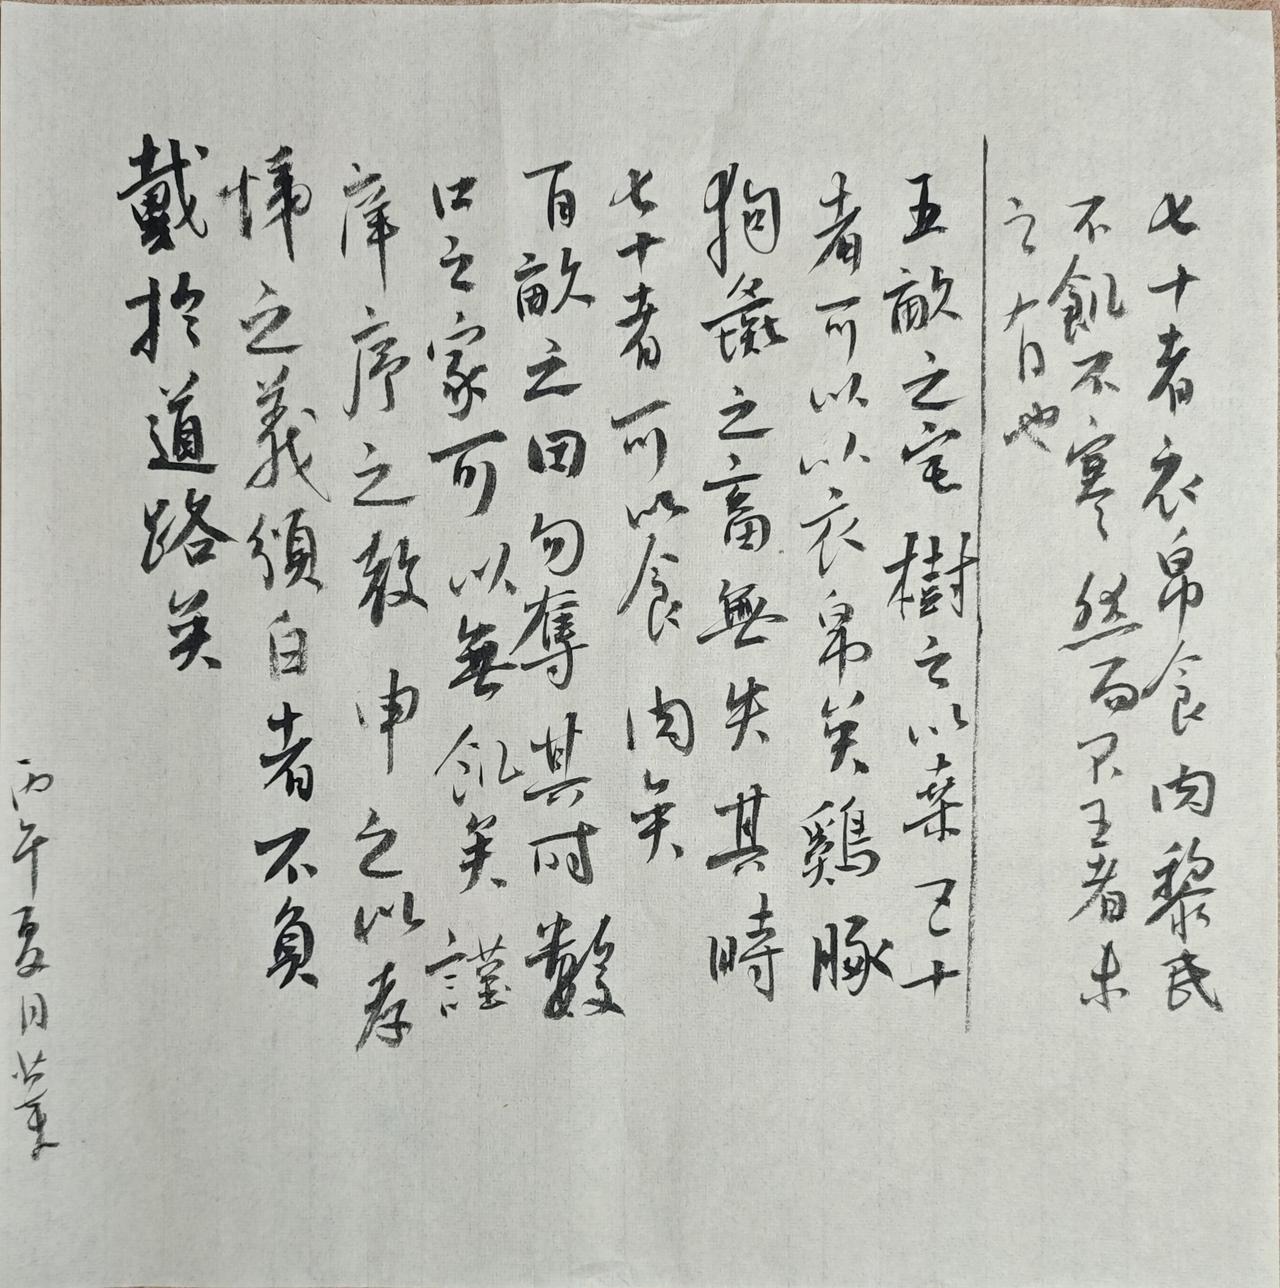 七十者衣帛食肉黎民
不飢不寒然而不王者未
之有也
五畝之宅樹之以桑五十
者可以以衣帛矣鷄豚
狗彘之畜無失其時
七十者可以食肉矣
百畝之田勿奪其时數
口之家可以無飢矣謹
庠序之教申之以孝
悌之義頒白者不負
戴於道路矣
丙午夏日